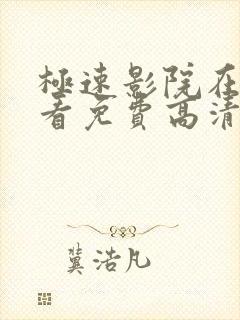 極速影院在
看免費高清
冀浩凡